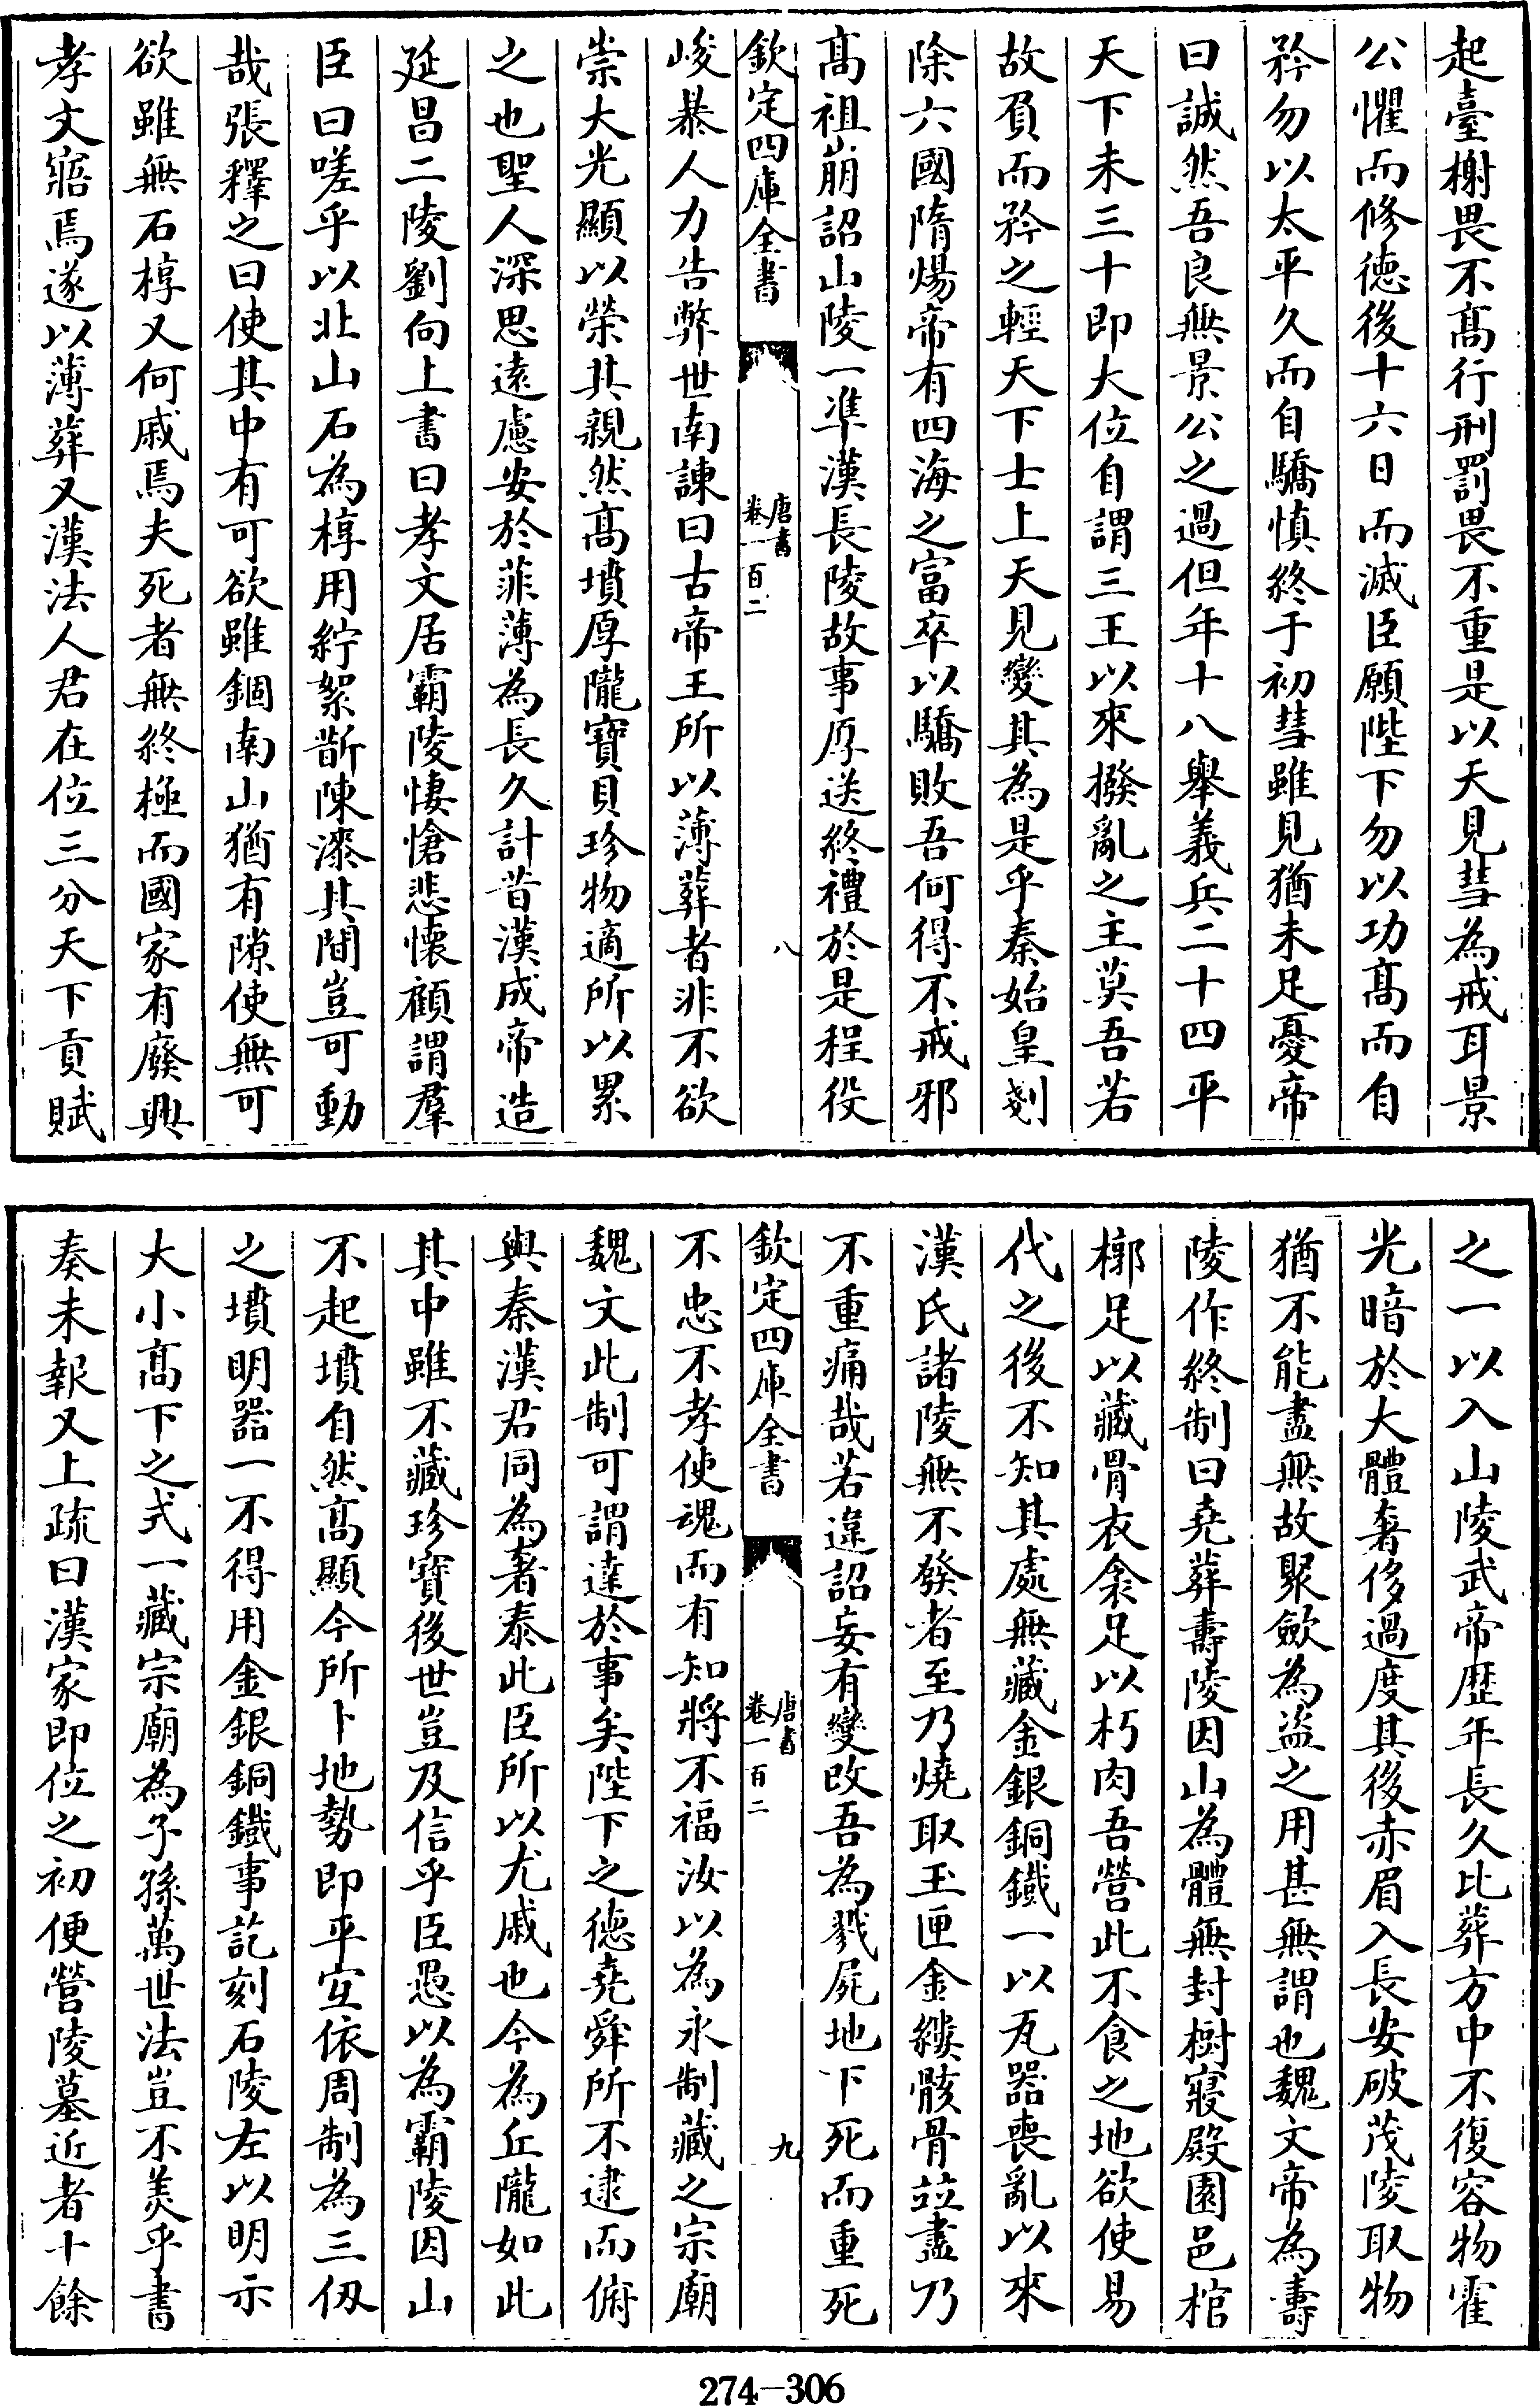 起臺榭畏不髙行刑罰畏不重是以天見彗為戒耳景
公懼而修徳後十六日而滅臣願陛下勿以功髙而自
矜勿以太平久而自驕慎終于初彗雖見猶未足憂帝
曰誠然吾良無景公之過但年十八舉義兵二十四平
天下未三十即大位自謂三王以來撥亂之主莫吾若
故負而矜之輕天下士上天見變其為是乎秦始皇剗
除六國隋煬帝有四海之富卒以驕敗吾何得不戒邪
髙祖崩詔山陵一凖漢長陵故事厚送終禮於是程役
欽定四庫全書
唐書
卷一百二
八
峻暴人力告弊世南諫曰古帝王所以薄葬者非不欲
崇大光顯以榮其親然髙墳厚隴寶貝珍物適所以累
之也聖人深思逺慮安於菲薄為長久計昔漢成帝造
延昌二陵劉向上書曰孝文居霸陵悽愴悲懐顧謂羣
臣曰嗟乎以北山石為椁用紵絮斮陳漆其間豈可動
哉張釋之曰使其中有可欲雖錮南山猶有隙使無可
欲雖無石椁又何戚焉夫死者無終極而國家有廢興
孝文寤焉遂以薄葬又漢法人君在位三分天下貢賦
之一以入山陵武帝歴年長久比葬方中不復容物霍
光暗於大體奢侈過度其後赤眉入長安破茂陵取物
猶不能盡無故聚歛為盗之用甚無謂也魏文帝為壽
陵作終制曰堯葬壽陵因山為體無封樹寢殿園邑棺
槨足以藏骨衣衾足以朽肉吾營此不食之地欲使易
代之後不知其處無藏金銀銅鐵一以瓦器喪亂以來
漢氏諸陵無不發者至乃燒取玉匣金縷骸骨竝盡乃
不重痛哉若違詔妄有變改吾為戮屍地下死而重死
欽定四庫全書
唐書
卷一百二
九
不忠不孝使魂而有知將不福汝以為永制藏之宗廟
魏文此制可謂達於事矣陛下之德堯舜所不逮而俯
與秦漢君同為奢泰此臣所以尤戚也今為丘隴如此
其中雖不藏珍寶後世豈及信乎臣愚以為霸陵因山
不起墳自然髙顯今所卜地勢即平宜依周制為三仭
之墳明器一不得用金銀銅鐵事訖刻石陵左以明示
大小髙下之式一藏宗廟為子孫萬世法豈不美乎書
奏未報又上疏曰漢家即位之初便營陵墓近者十餘
274—306